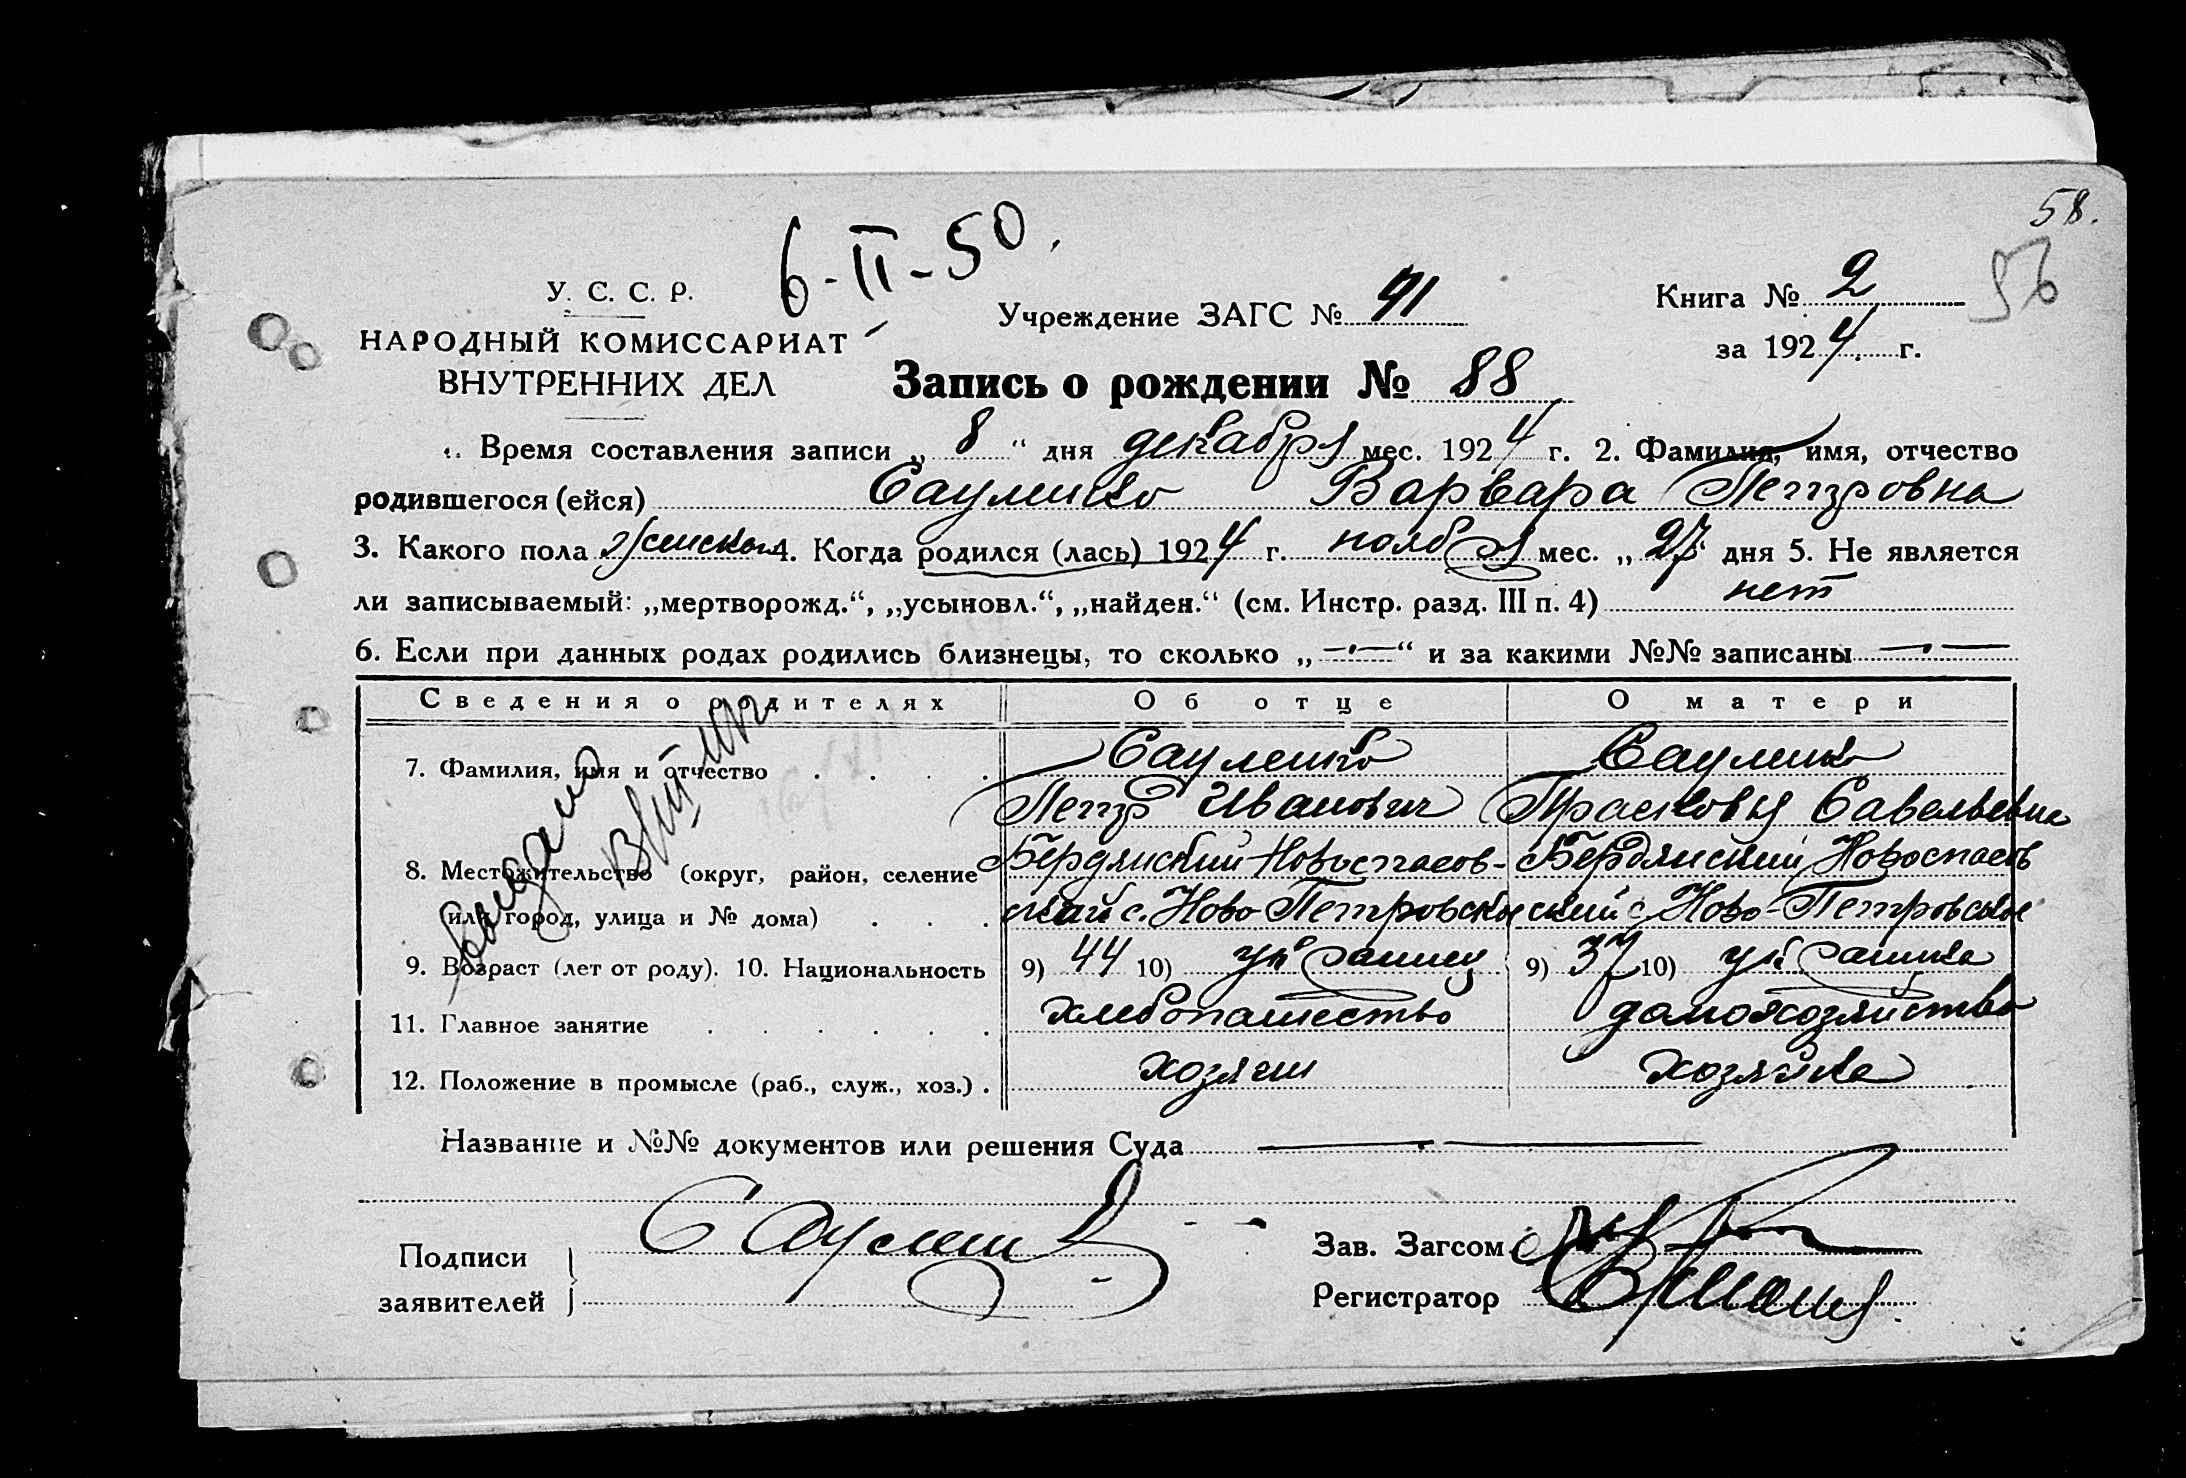 58.
56
6-II-50.
У. С. С. Р.
НАРОДНЫЙ КОМИССАРИАТ
ВНУТРЕННИХ ДЕЛ
Учреждение ЗАГС № 41
Книга № 2
за 1924 г.
Запись о рождении № 88
1. Время составления записи „ 8 “ дня декабря мес. 1924 г. 2. Фамилия, имя, отчество
родившегося (ейся) Сауленко Варвара Петровна
3. Какого пола женского 4. Когда родился (лась) 1924 г. ноября мес. „ 27 “ дня 5. Не является
ли записываемый: „мертворожд.“, „усыновл.“, „найден.“ (см. Инстр. разд. III п. 4) нет
6. Если при данных родах родились близнецы, то сколько „ —·— “ и за какими №№ записаны —·—
Сведения о родителях Об отце О матери
7. Фамилия, имя и отчество . . . . Сауленко Сауленко
Петр Иванович Прасковья Савельевна
8. Местожительство (округ, район, селение Бердянский Новоспасов- Бердянский Новоспасов
или город, улица и № дома) . . . ский с. Ново-Петровское ский с. Ново-Петровское
9. Возраст (лет от роду). 10. Национальность 9) 44 10) украинец 9) 37 10) украинка
11. Главное занятие . . . . . . хлебопашество домохозяйство
12. Положение в промысле (раб., служ., хоз.) . хозяин хозяйка
выдано
Название и №№ документов или решения Суда
Подписи
заявителей
Сауленко
Зав. Загсом
Регистратор